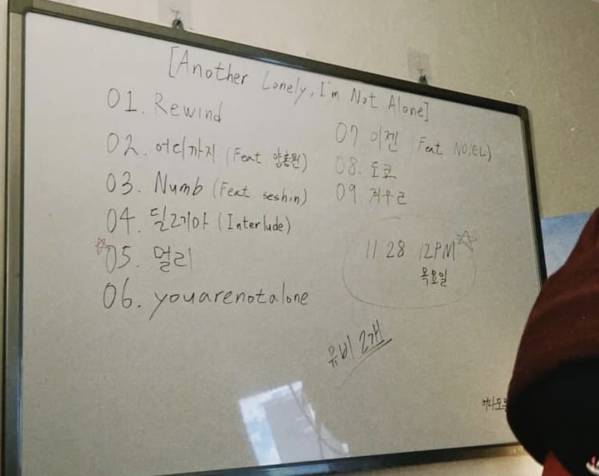 [Another Lonely, I'm Not Alone]
01. Rewind
02. 어디까지 (Feat 양홍원)
03. Numb (Feat seshin)
04. 딜리야 (Interlude)
05. 멀리
06. youarenotalone
07 이젠 (Feat NO:EL)
08. 도로
09 지우고
11 28 12PM
목요일
뮤비 2개